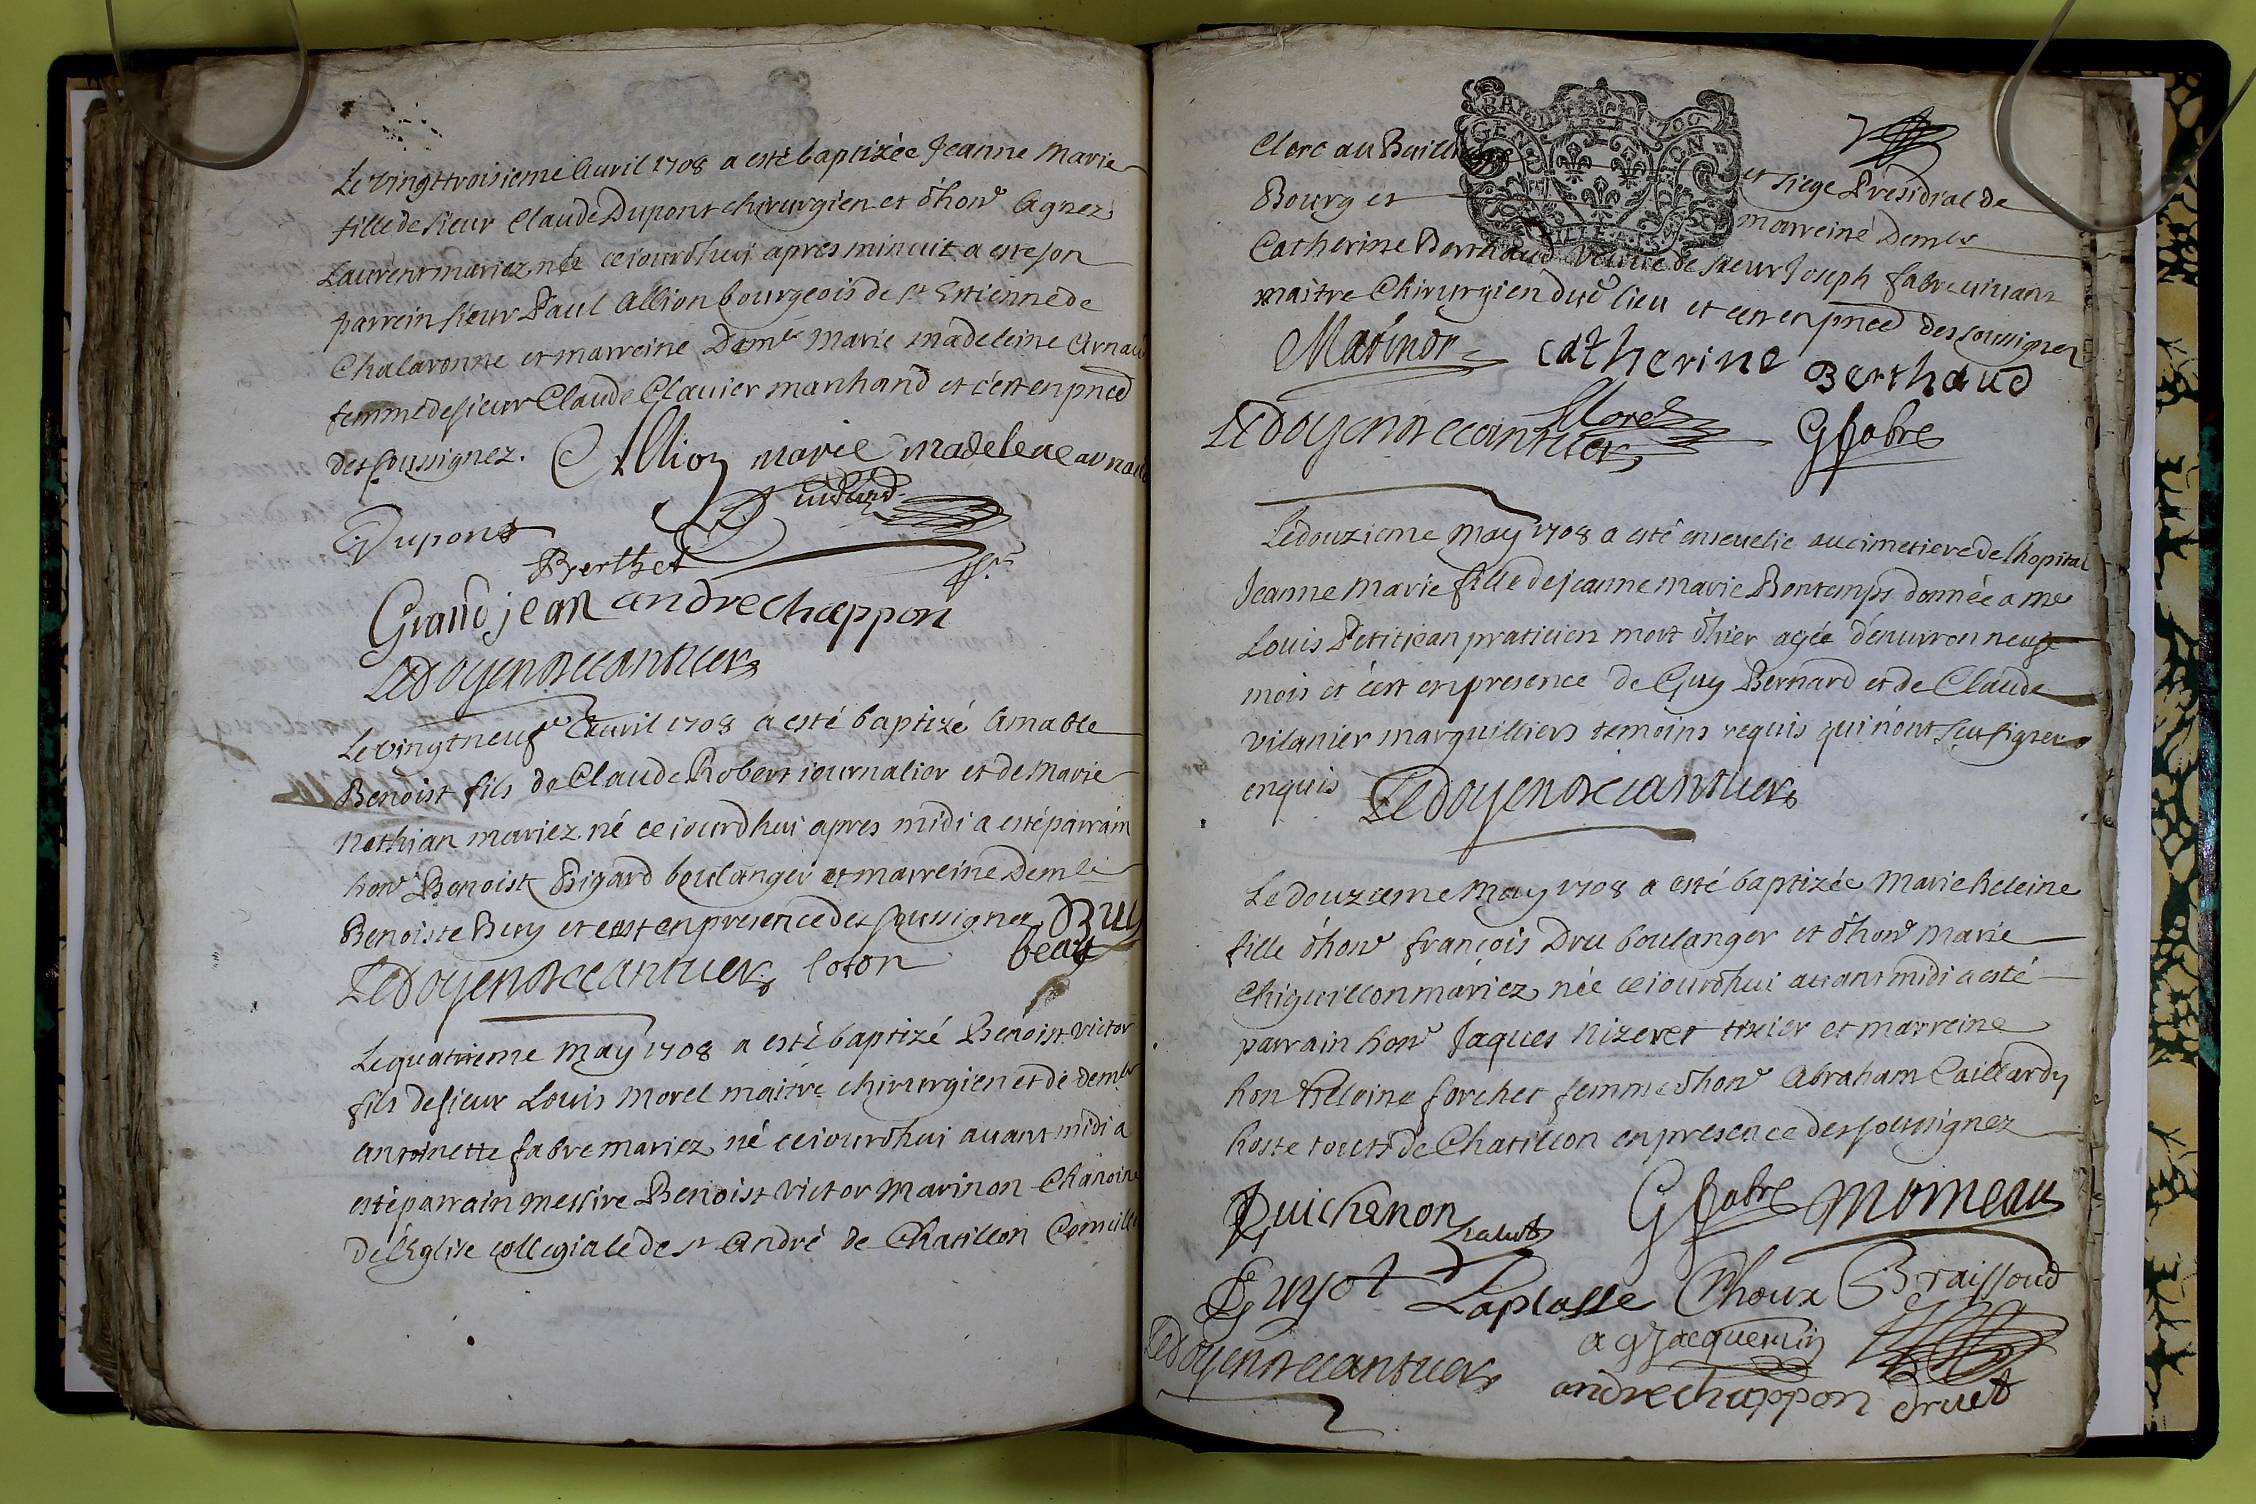 Le vingttroisieme Avril 1708 a esté baptizée Jeanne Marie
fille de sieur Claude Dupont chirurgien et d'honᵉ Agnez
Laurent mariez née ce jourdhui apres minuit a este son
parrein sieur Paul Allion bourgeois de St Estienne de
Chalaronne et marreine Demlle Marie Madeleine Arnau
femme de sieur Claude Clavier marchand et c'est en pnce
des soussignez. Allion marie madelene arnau
Dupont
Berthet
Grand jean andrechappon
Ledoyen
Le vingtneufᵉ Avril 1708 a esté baptizé Amable
Benoist fils de Claude Robert journalier et de Marie
Nathian mariez né ce jourdhui apres midi a esté parrain
honᵉ Benoist Bigard boulanger et marreine Demlle
Benoiste Buy et c'est en presence des soussignez Buy
Ledoyen loton beau
Le quatrieme May 1708 a esté baptizé Benoist Victor
fils de sieur Louis Morel maitre chirurgien et de demlle
Antoinette fabre mariez né ce jourdhui avant midi a
esté parrain messire Benoist Victor Marinon Chanoine
de l'Eglise collegiale de St André de Chatillon Conseille
Clerc au Bailli et siege Presidial de
Bourg et marreine Demlle
Catherine Berthaud veuve de sieur Joseph fabre vivant
maitre Chirurgien dud lieu et c'est en pnce des soussignez
Marinon Catherine Berthaud
Ledoyen Morel G fabre
Le douzieme May 1708 a esté ensevelie au cimetiere de l'hopital
Jeanne Marie fille de jeanne Marie Bontemps donnée a me
Louis Petitjean praticien mort d'hier agée d'environ neuf
mois et c'est en presence de Guy Bernard et de Claude
Vilanier marguilliers temoins requis qui n'ont sçu signer
enquis Ledoyen
Le douzieme May 1708 a esté baptizée Marie heleine
fille d'honᵉ françois Dru boulanger et d'honᵉ Marie
Chiguillon mariez née ce jourdhui avant midi a esté
parrain honᵉ Jaques Nizeret tixier et marreine
hon heleine forchet femme d'honᵉ Abraham Caillardy
hoste touts de Chatillon en presence des soussignez
Guichenon G fabre Morneau
Guyot Laplasse Choux Braissoud
Ledoyen a g Jacquemin
andrechappon druet